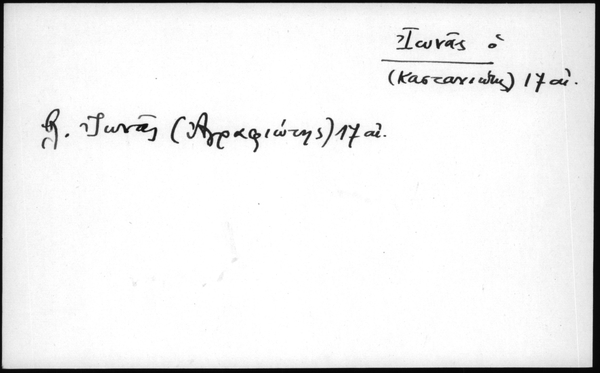 Ἰωνᾶς ὁ
(Καστανιώτης) 17 αἰ.
β. Ἰωνᾶς (Ἀγραφιώτης) 17 αἰ.